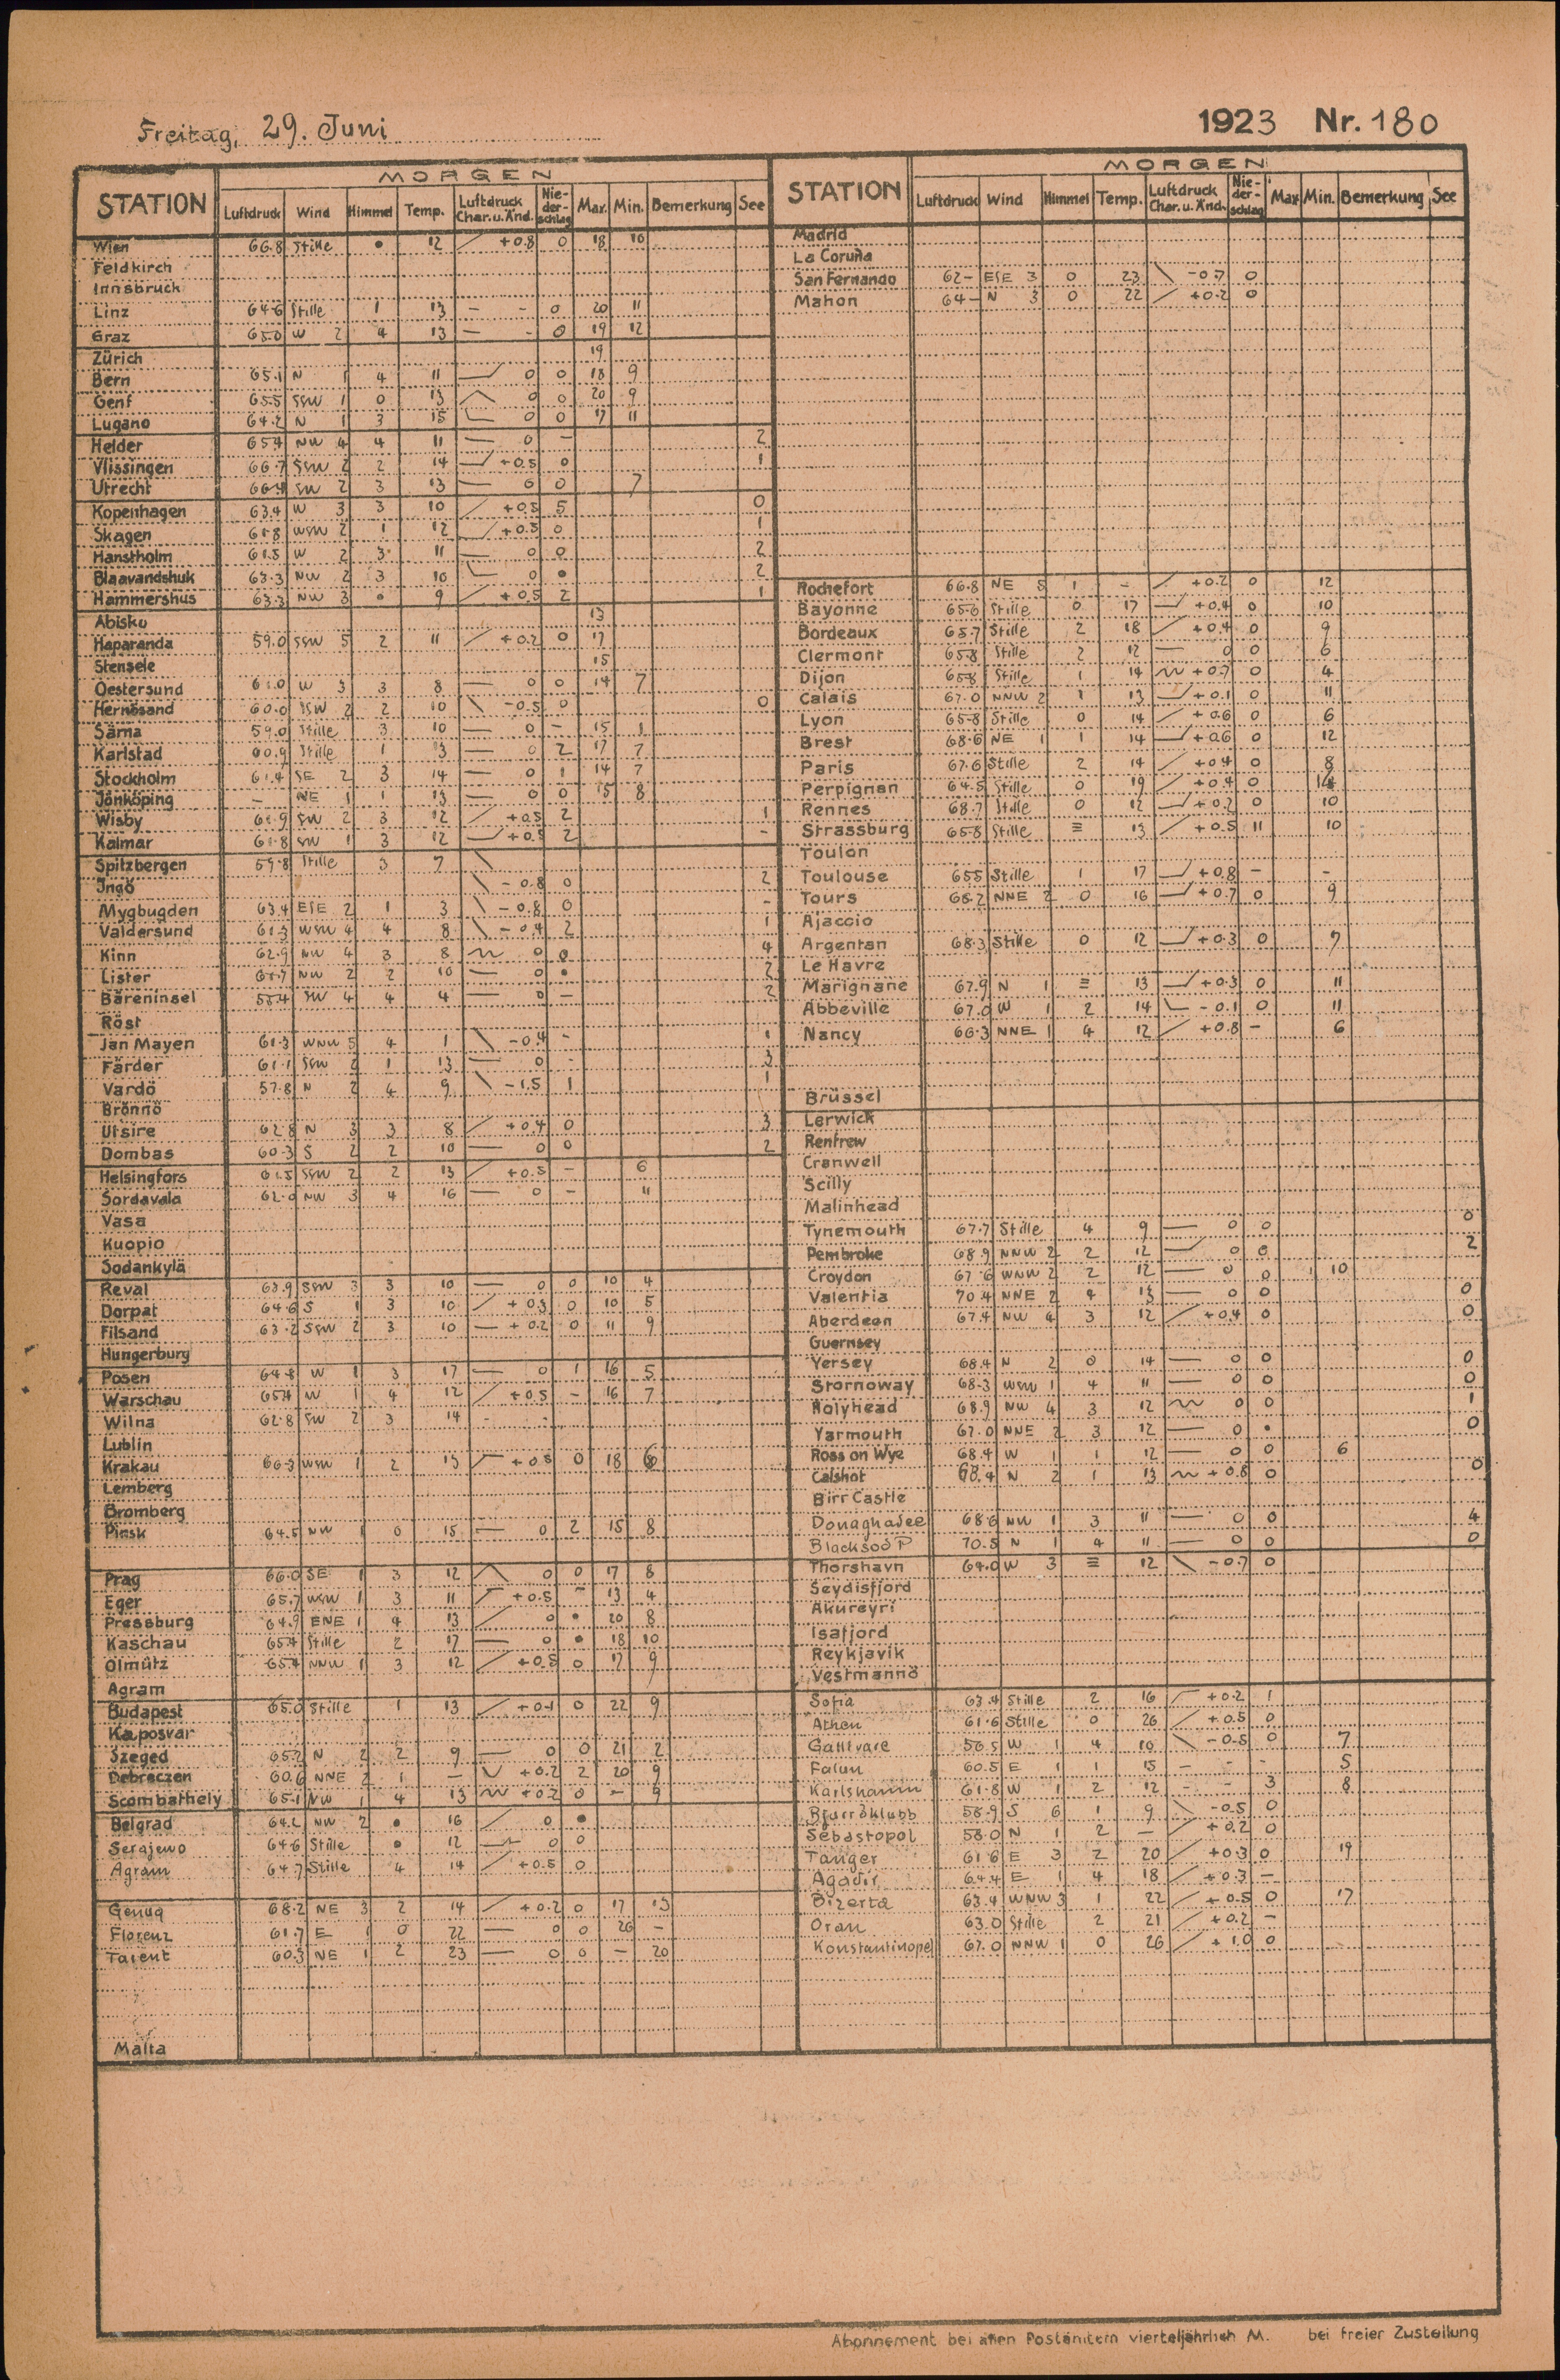 Freitag, 29. Juni
1923 Nr. 180
MORGEN
STATION Luftdruck Wind Himmel Temp. Luftdruck Char. u. Änd. Nie-der-schlag Max. Min. Bemerkung See
Wien 66.8 Stille • 12 +0.8 0 18 10
Feldkirch
Innsbruck
Linz 64.6 Stille 1 13 – – 0 20 11
Graz 65.0 W 2 4 13 — - 0 19 12
Zürich 19
Bern 65.1 N 1 4 11 0 0 18 9
Genf 65.5 SSW 1 0 13 0 0 20 9
Lugano 64.2 N 1 3 15 0 0 17 11
Helder 65.4 NW 4 4 11 — 0 – 2
Vlissingen 66.7 SSW 2 2 14 +0.5 0 1
Utrecht 66.4 SW 2 3 13 — 0 0 7
Kopenhagen 63.4 W 3 3 10 +0.5 5 0
Skagen 61.8 WSW 2 1 12 +0.5 0 1
Hanstholm 61.5 W 2 3 11 — 0 0 2
Blaavandshuk 63.3 NW 2 3 10 0 • 2
Hammershus 63.3 NW 3 • 9 +0.5 2 1
Abisko 13
Haparanda 59.0 SSW 5 2 11 +0.2 0 17
Stensele 15
Oestersund 61.0 W 3 3 8 — 0 0 14 7
Hernösand 60.0 SSW 2 2 10 -0.5 0 0
Särna 59.0 Stille 3 10 — 0 – 15 1
Karlstad 60.9 Stille 1 13 — 0 2 17 7
Stockholm 61.4 SE 2 3 14 — 0 1 14 7
Jönköping – NE 1 1 13 — 0 0 15 8
Wisby 61.9 SW 2 3 12 +0.5 2 1
Kalmar 61.8 SW 1 3 12 +0.5 2 –
Spitzbergen 59.8 Stille 3 7
Ingö -0.8 0 2
Mygbugden 63.4 ESE 2 1 3 -0.8 0 –
Valdersund 61.3 WSW 4 4 8 -0.4 2 1
Kinn 62.9 NW 4 3 8 0 0 4
Lister 61.7 NW 2 2 10 — 0 • 2
Bäreninsel 58.4 SW 4 4 4 — 0 – 2
Röst
Jan Mayen 61.3 WNW 5 4 1 -0.4 – 1
Färder 61.1 SSW 2 1 13 — 0 - 3
Vardö 57.8 N 2 4 9 -1.5 1 1
Brönnö
Utsire 62.8 N 3 3 8 +0.4 0 3
Dombas 60.3 S 2 2 10 — 0 0 2
Helsingfors 61.5 SSW 2 2 13 +0.5 – 6
Sordavala 62.0 NW 3 4 16 — 0 – 11
Vasa
Kuopio
Sodankylä
Reval 63.9 SSW 3 3 10 — 0 0 10 4
Dorpat 64.6 S 1 3 10 +0.3 0 10 5
Filsand 63.2 SSW 2 3 10 — +0.2 0 11 9
Hungerburg
Posen 64.8 W 1 3 17 — 0 1 16 5
Warschau 65.4 W 1 4 12 +0.5 – 16 7
Wilna 62.8 SW 2 3 14 - -
Lublin
Krakau 66.3 WSW 1 2 13 +0.5 0 18 6
Lemberg
Bromberg
Pinsk 64.5 NW 1 0 15 — 0 2 15 8
Prag 66.0 SE 1 3 12 0 0 17 8
Eger 65.7 WSW 1 3 11 +0.5 – 13 4
Pressburg 64.9 ENE 1 4 13 0 • 20 8
Kaschau 65.4 Stille 2 17 — 0 • 18 10
Olmütz 65.4 NNW 1 3 12 +0.8 0 17 9
Agram
Budapest 65.0 Stille 1 13 +0.1 0 22 9
Kaposvar
Szeged 65.2 N 2 2 9 — 0 0 21 2
Debreczen 60.6 NNE 2 1 — +0.2 2 20 9
Scombathely 65.1 NW 1 4 13 +0.2 0 – 9
Belgrad 64.2 NW 2 • 16 0 •
Serajewo 64.6 Stille • 12 0 0
Agram 64.7 Stille 4 14 +0.5 0
Genua 68.2 NE 3 2 14 +0.2 0 17 13
Florenz 61.7 E 1 0 22 — 0 0 26 –
Tarent 60.3 NE 1 2 23 — 0 0 – 20
Malta
MORGEN
STATION Luftdruck Wind Himmel Temp. Luftdruck Char. u. Änd. Nie-der-schlag Max Min. Bemerkung See
Madrid
La Coruña
San Fernando 62– ESE 3 0 23 -0.7 0
Mahon 64– N 3 0 22 +0.2 0
Rochefort 66.8 NE 5 1 – +0.2 0 12
Bayonne 65.6 Stille 0 17 +0.4 0 10
Bordeaux 65.7 Stille 2 18 +0.4 0 9
Clermont 65.8 Stille 2 12 — 0 0 6
Dijon 65.8 Stille 1 14 +0.7 0 4
Calais 67.0 NNW 2 1 13 +0.1 0 11
Lyon 65.8 Stille 0 14 +0.6 0 6
Brest 68.6 NE 1 1 14 +0.6 0 12
Paris 67.6 Stille 2 14 +0.4 0 8
Perpignan 64.5 Stille 0 19 +0.4 0 14
Rennes 68.7 Stille 0 12 +0.2 0 10
Strassburg 65.8 Stille ≡ 13 +0.5 11 10
Toulon
Toulouse 65.5 Stille 1 17 +0.8 – –
Tours 68.2 NNE 2 0 16 +0.7 0 9
Ajaccio
Argentan 68.3 Stille 0 12 +0.3 0 7
Le Havre
Marignane 67.9 N 1 ≡ 13 +0.3 0 11
Abbeville 67.0 W 1 2 14 -0.1 0 11
Nancy 66.3 NNE 1 4 12 +0.8 – 6
Brüssel
Lerwick
Renfrew
Cranwell
Scilly
Malinhead
Tynemouth 67.7 Stille 4 9 — 0 0 0
Pembroke 68.9 NNW 2 2 12 0 0 2
Croydon 67.6 WNW 2 2 12 — 0 0 10
Valentia 70.4 NNE 2 4 13 — 0 0 0
Aberdeen 67.4 NW 4 3 12 +0.4 0 0
Guernsey
Yersey 68.4 N 2 0 14 — 0 0 0
Stornoway 68.3 WSW 1 4 11 — 0 0 0
Holyhead 68.9 NW 4 3 12 0 0 1
Yarmouth 67.0 NNE 2 3 12 — 0 • 0
Ross on Wye 68.4 W 1 1 12 — 0 0 6
Calshot 68.4 N 2 1 13 +0.8 0 0
Birr Castle
Donaghadee 68.6 NW 1 3 11 — 0 0 4
Blacksod P 70.5 N 1 4 11 — 0 0 0
Thorshavn 64.0 W 3 ≡ 12 -0.7 0
Seydisfjord
Akureyri
Isafjord
Reykjavik
Vestmannö
Sofia 63.4 Stille 2 16 +0.2 1
Athen 61.6 Stille 0 26 +0.5 0
Gallivare 56.5 W 1 4 10 -0.5 0 7
Falun 60.5 E 1 1 15 – - - 5
Karlshamn 61.8 W 1 2 12 - - 3 8
Bjurröklubb 58.9 S 6 1 9 -0.5 0
Sebastopol 58.0 N 1 2 — +0.2 0
Tanger 61.6 E 3 2 20 +0.3 0 19
Agadir 64.4 E 1 4 18 +0.3 –
Bizerta 63.4 WNW 3 1 22 +0.5 0 17
Oran 63.0 Stille 2 21 +0.2 –
Konstantinopel 67.0 NNW 1 0 26 +1.0 0
Abonnement bei allen Postämtern vierteljährlich M. bei freier Zustellung